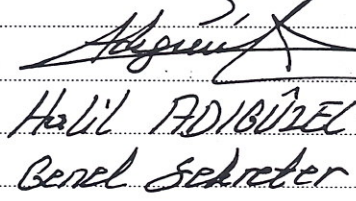 Halil ADIGÜZEL
Genel Sekreter